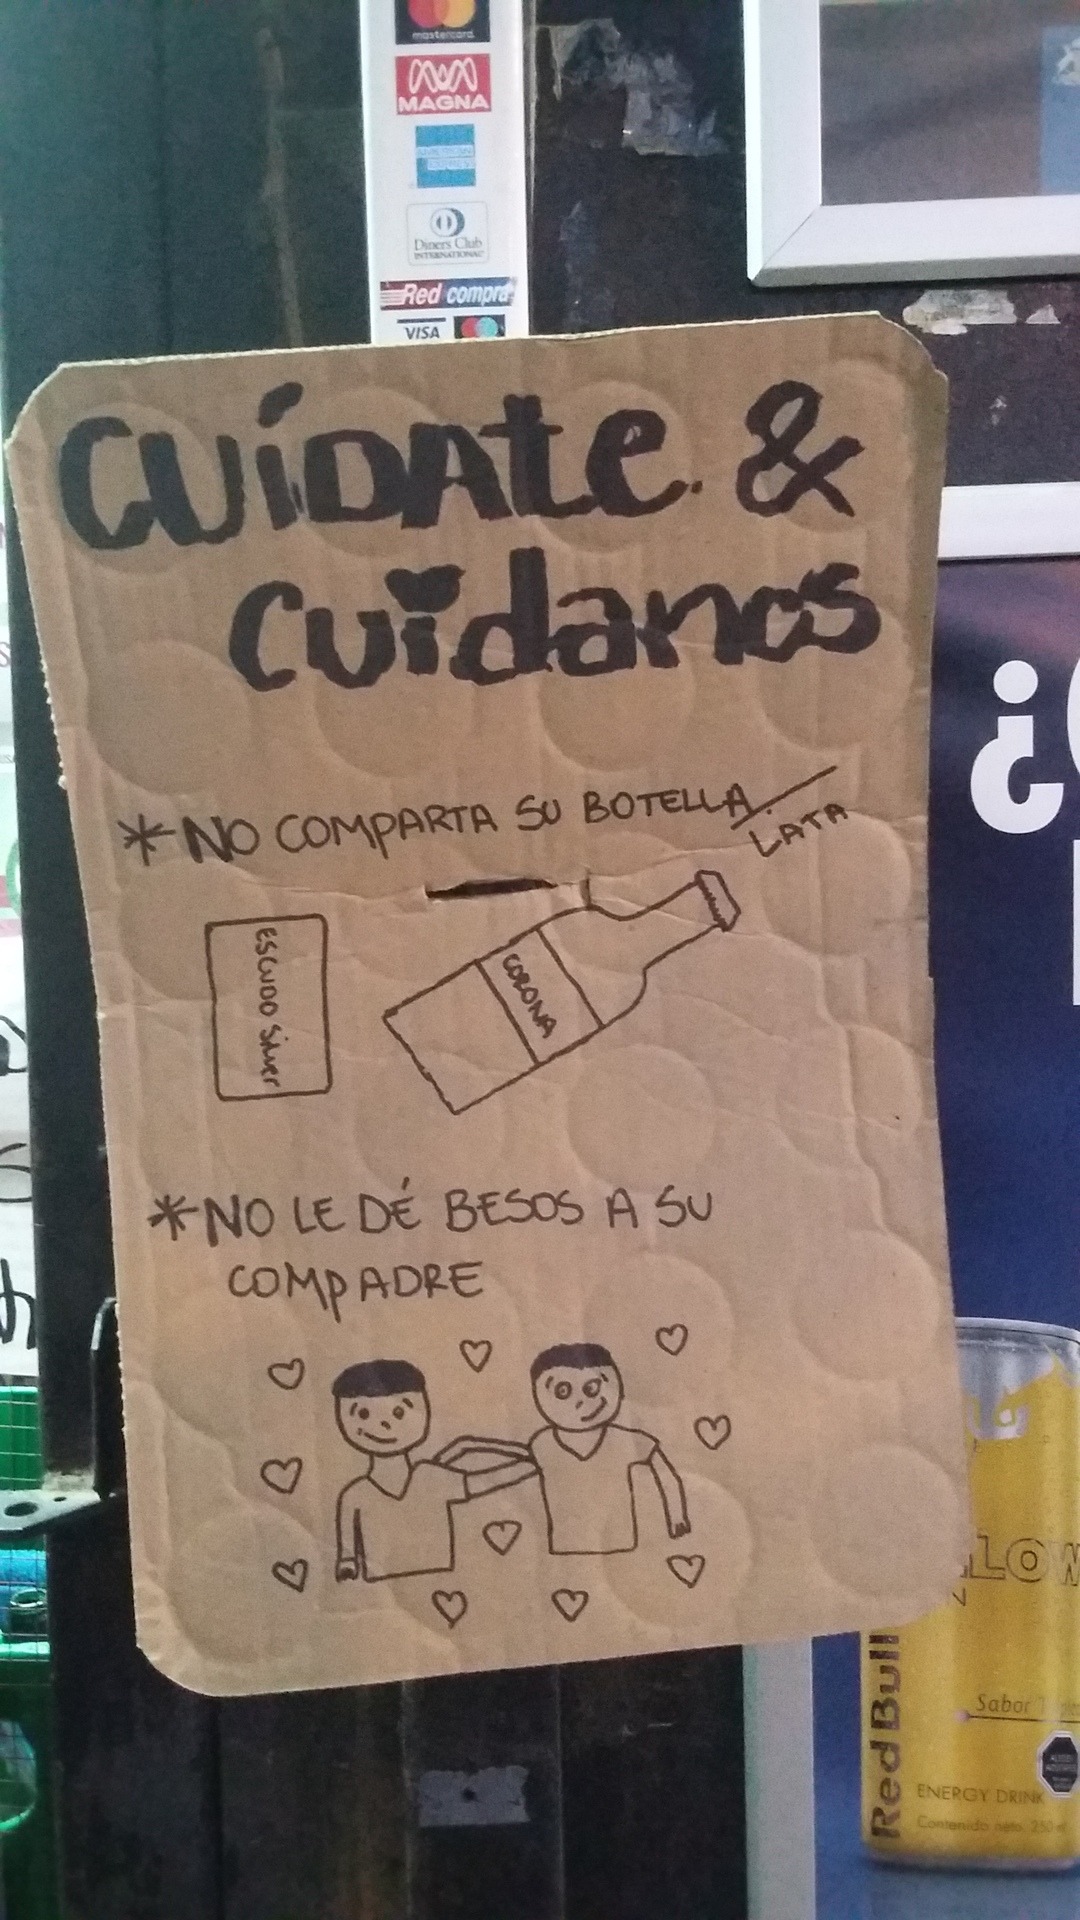 mastercard
MAGNA
AMERICAN EXPRESS
Diners Club
INTERNATIONAL
Red compra
VISA
CUÍDATE &
CUIDANOS
* NO COMPARTA SU BOTELLA/
LATA
ESCUDO Silver
CORONA
* NO LE DÉ BESOS A SU
COMPADRE
Red Bull
Sabor
ENERGY DRINK
Contenido neto. 250